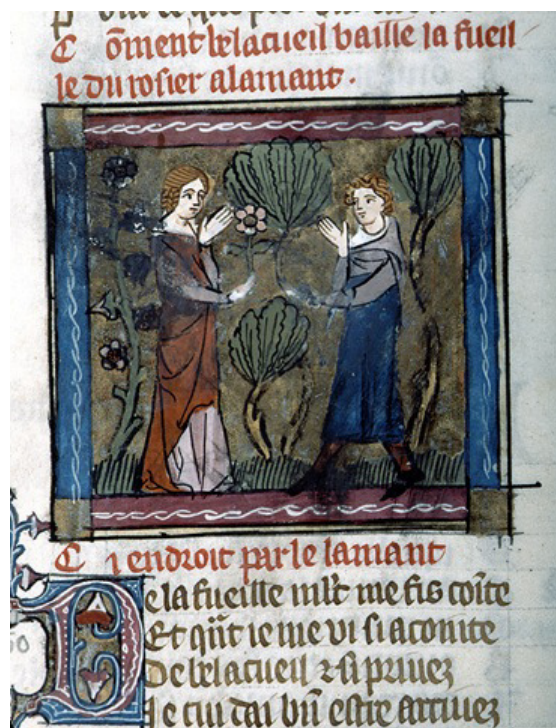 Coment belacueil baille la fueil
le du rosier alamant.
Ci endroit parle lamant
De la fueille mlt me fis coīte
Et qūt ie me vi si acointe
De belacueil ⁊ si priuez
Je cui dai